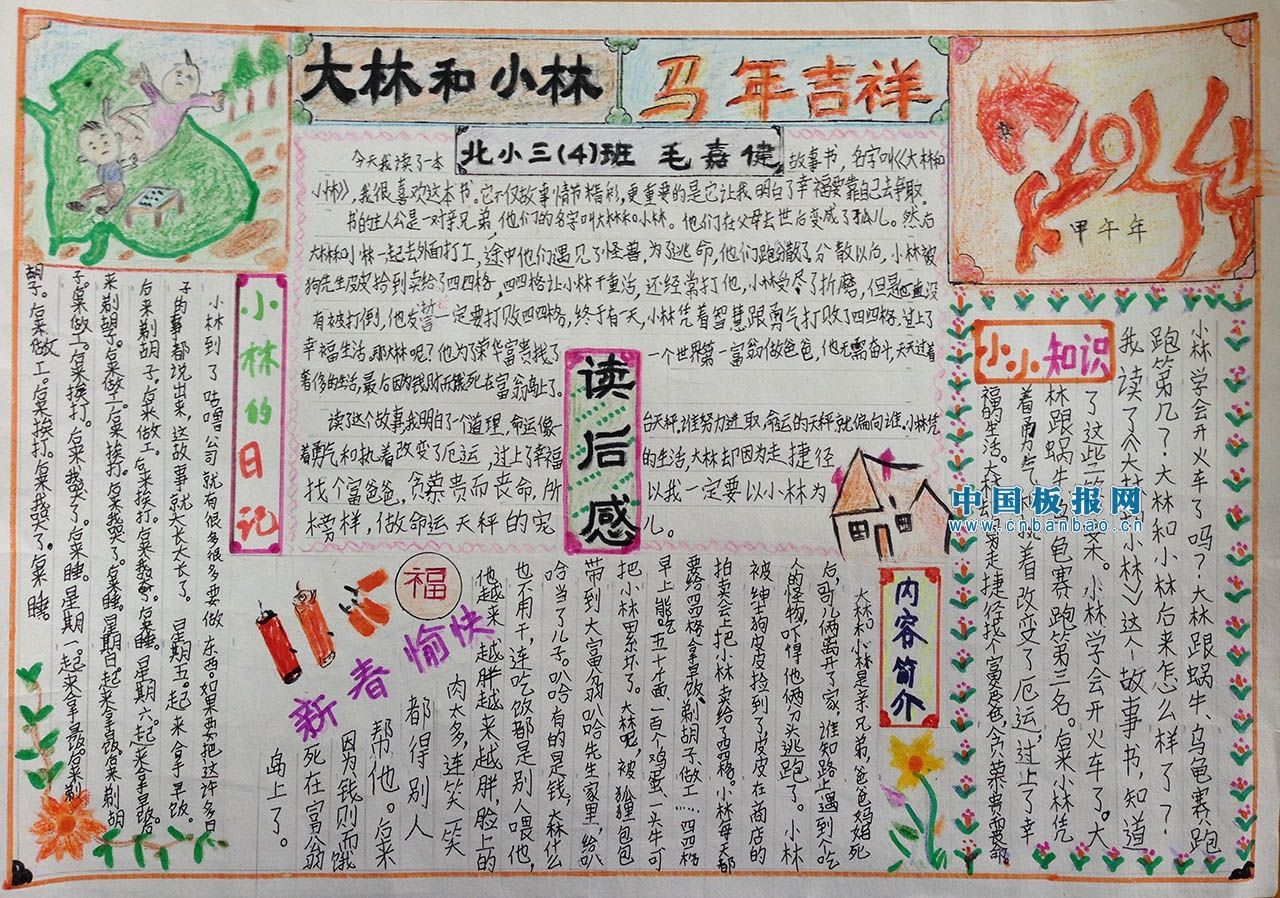 大林和小林
马年吉祥
北小三(4)班 毛嘉健
今天我读了一本故事书,名字叫《大林和
小林》,我很喜欢这本书。它不仅故事情节精彩,更重要的是它让我明白了幸福要靠自己去争取。
书的主人公是一对亲兄弟,他们的名字叫大林和小林。他们在父母去世后变成了孤儿。然后
大林和小林一起去外面打工,途中他们遇见了怪兽,为了逃命,他们跑散了分散以后,小林被
狗先生皮皮拾到卖给了四四格,四四格让小林干重活,还经常打他,小林受尽了折磨,但是也没
有被打倒,他发誓一定要打败四四格,终于有一天,小林凭着智慧跟勇气打败了四四格,过上了
幸福生活。那大林呢?他为了荣华富贵找了一个世界第一富翁做爸爸,他无需奋斗,天天过着
奢侈的生活,最后因为钱财而饿死在富翁岛上了。
读了这个故事,我明白了一个道理,命运像台天秤,谁努力进取,命运的天秤就偏向谁。小林凭
着勇气和执着改变了厄运,过上了幸福的生活,大林却因为走捷径
找个富爸爸,贪慕贵而丧命,所以我一定要以小林为
榜样,做命运天秤的宠儿。
读后感
甲午年
小小知识
小林学会开火车了吗?大林跟蜗牛、乌龟赛跑
跑第几?大林和小林后来怎么样了?
我读了《大林和小林》这个故事书,知道
了这些答案。小林学会开火车了。大
林跟蜗牛乌龟赛跑第三名。后来小林凭
着勇气执着改变了厄运,过上了幸
福的生活。大林却因为走捷径找个富爸爸,贪荣贵而丧命。
内容简介
大林和小林是亲兄弟,爸爸妈妈死
后,哥儿俩离开了家,谁知路上遇到个吃
人的怪物,吓得他俩分头逃跑了。小林
被绅士狗皮皮捡到了,皮皮在商店的
拍卖会上把小林卖给了四四格。小林每天都
要给四四格拿早饭、剃胡子、做工……四四格
早上能吃五十个面一百个鸡蛋、一头牛可
把小林累坏了。大林呢,被狐狸包包
带到大富翁叭哈先生家里,给叭
哈当了儿子。叭哈有的是钱,大林什么
也不用干,连吃饭都是别人喂他,
他越来越胖越来越胖,脸上的
肉太多,连笑一笑
都得别人
帮他。后来
因为钱财而饿
死在富翁
岛上了。
福
新春愉快
小林的日记
小林到了咕噜公司就有很多很多要做东西。如果要把这许多日
子的事都说出来,这故事就大长大长了。星期五。起来拿早饭。
后来剃胡子。后来做工。后来挨打。后来我哭。后来睡。星期六。起来拿早饭后
来剃胡子。后来做工。后来挨打。后来我哭了。后来睡。星期日。起来拿早饭。后来剃胡
子。后来做工。后来挨打。后来我哭了。后来睡。星期一。起来拿早饭。后来剃
胡子。后来做工。后来挨打。后来我哭了。后来睡。
中国板报网
www.cnbanbao.cn